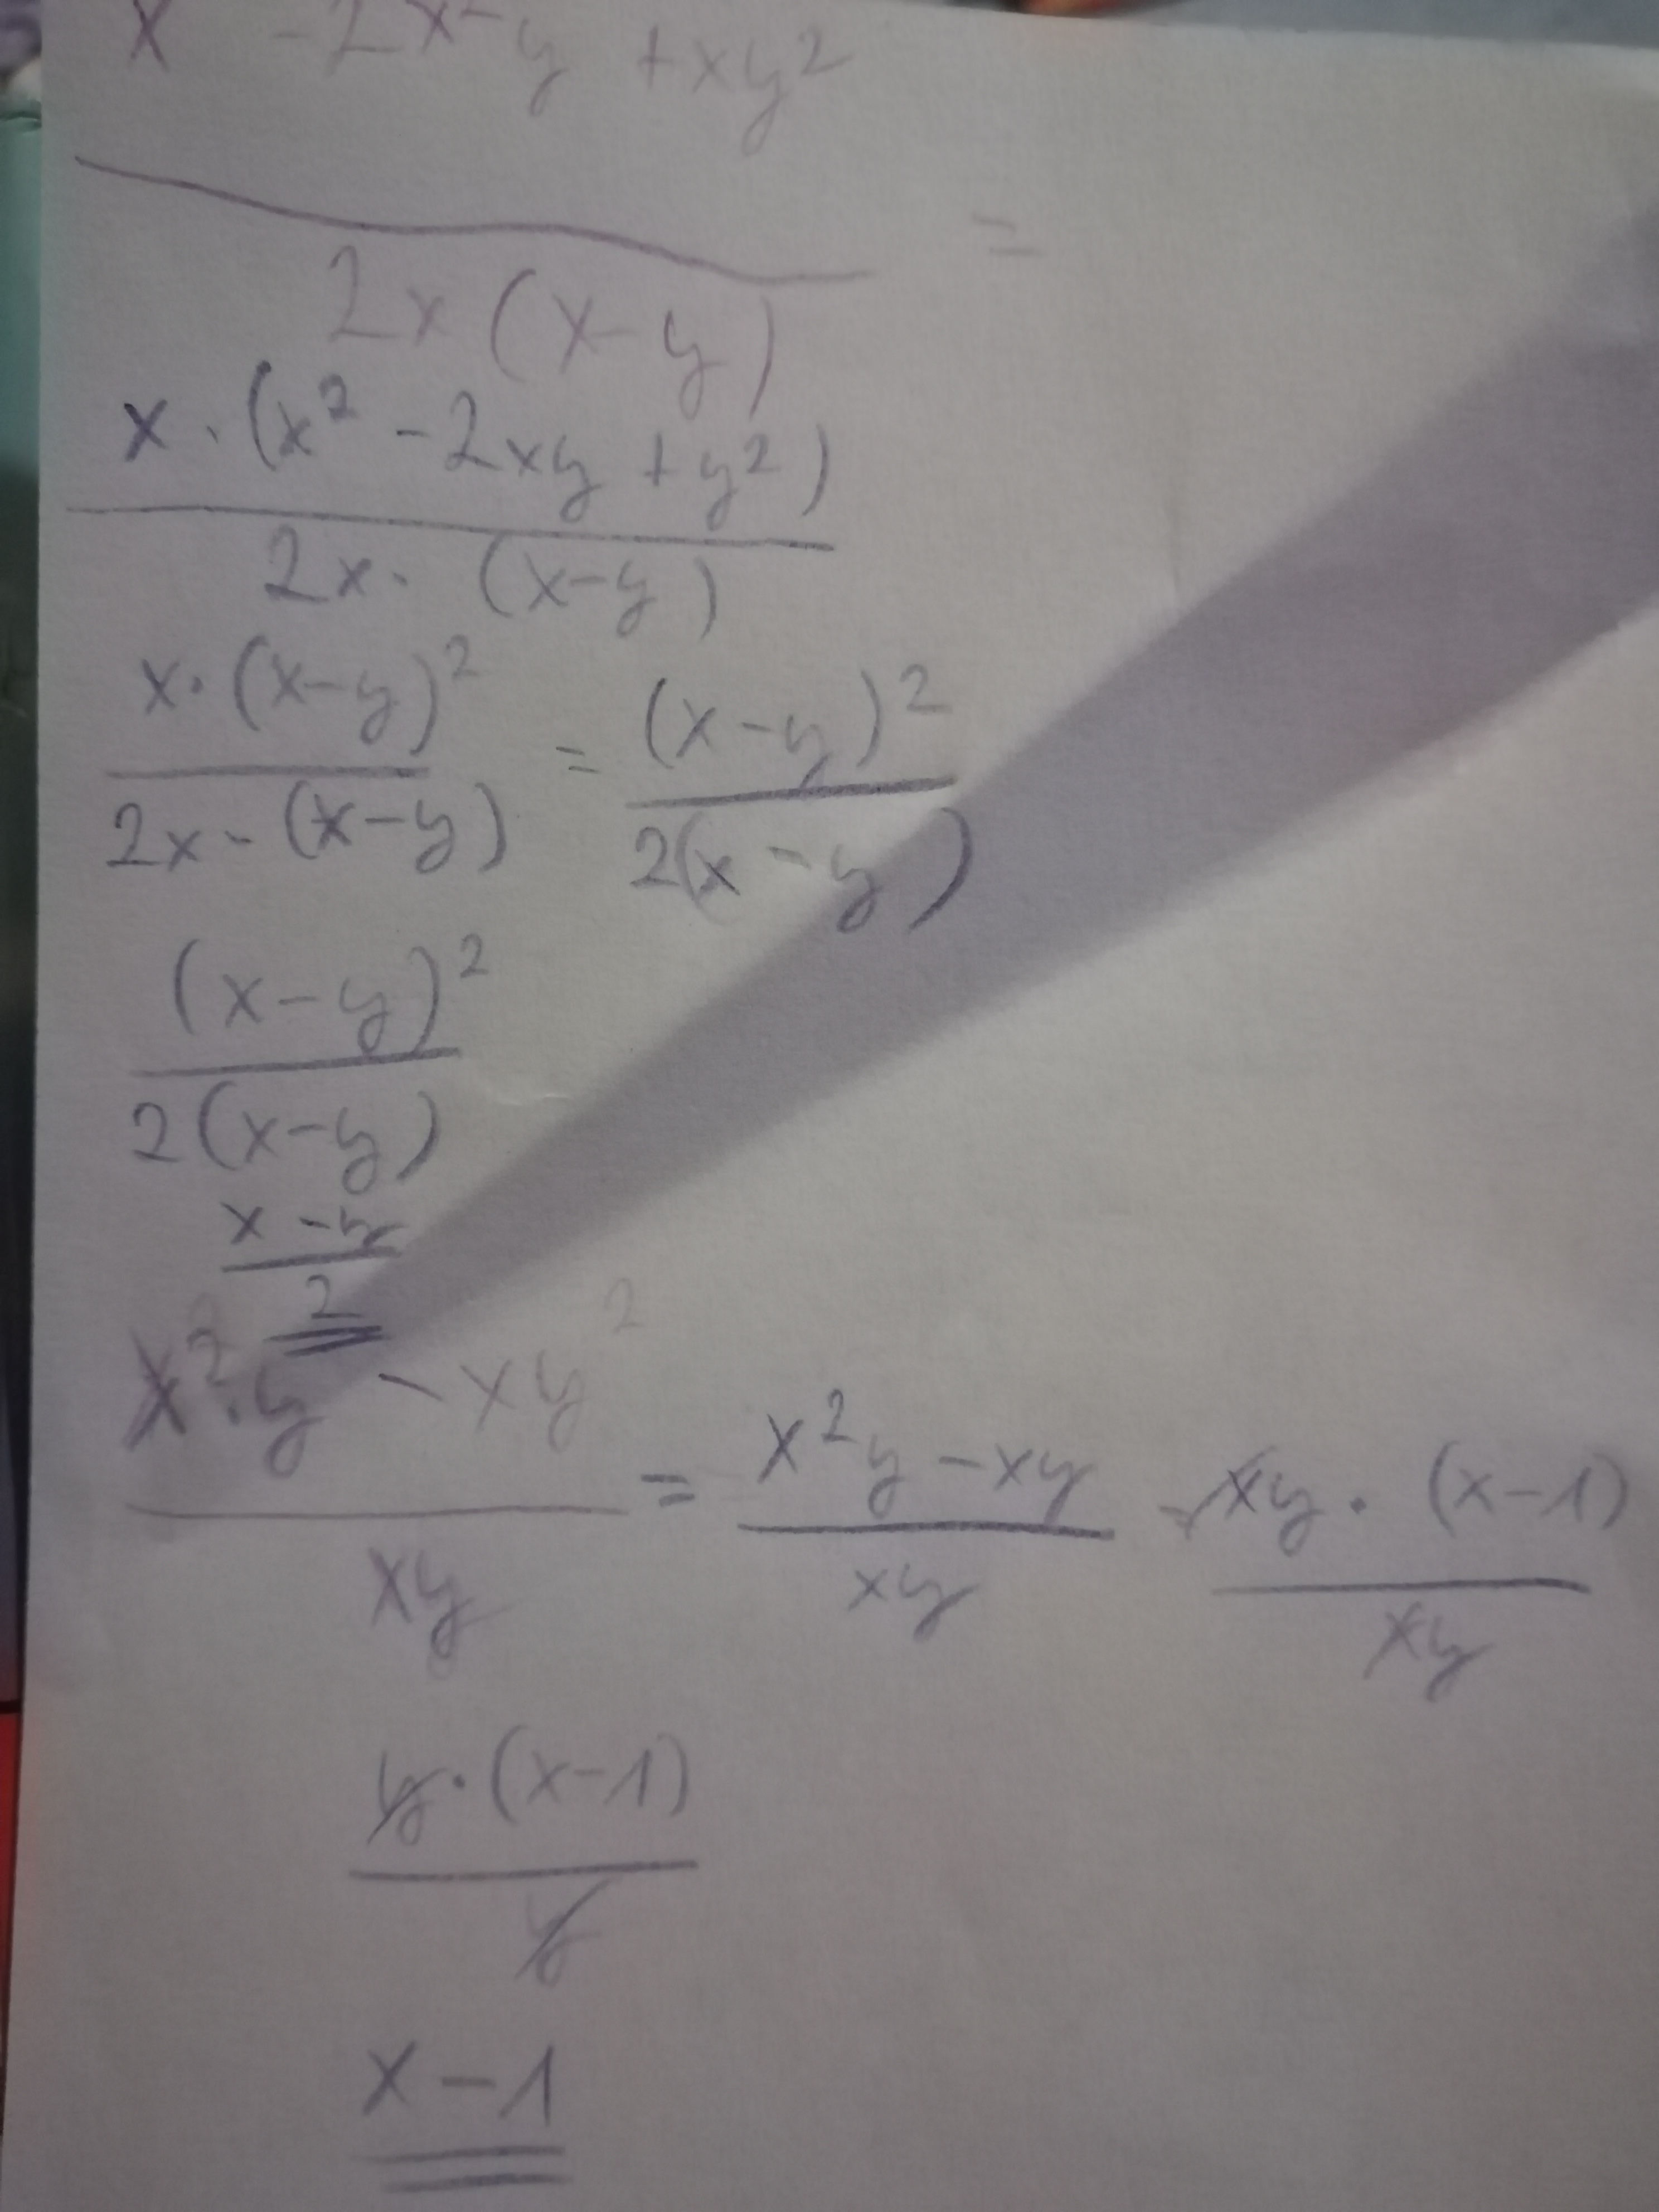 x - 2x²y + xy²
/ 2x(x-y) =
x · (x² - 2xy + y²)
/ 2x · (x-y)
x · (x-y)² / 2x - (x-y) = (x-y)² / 2(x-y)
(x-y)²
/ 2(x-y)
x - y
/ 2
x² · y - xy² / xy = x²y - xy / xy - xy · (x-1) / xy
y · (x-1)
/ y
x - 1